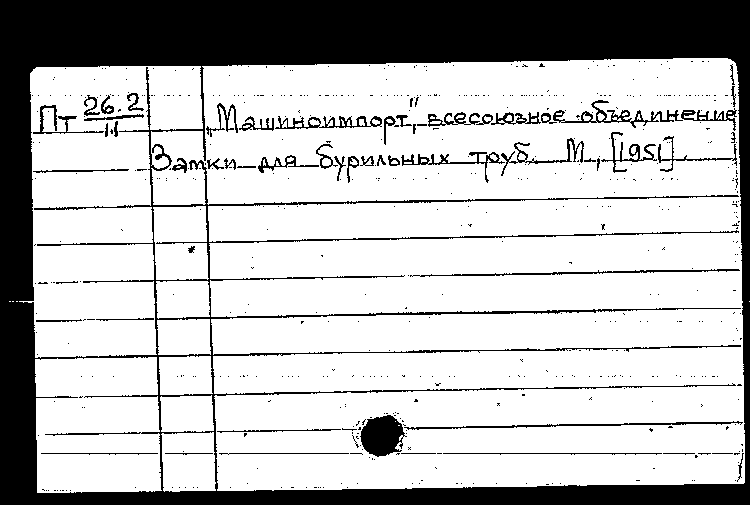 Пт 26.2/11 „Машиноимпорт", всесоюзное объединение
Замки для бурильных труб. М, [1951].